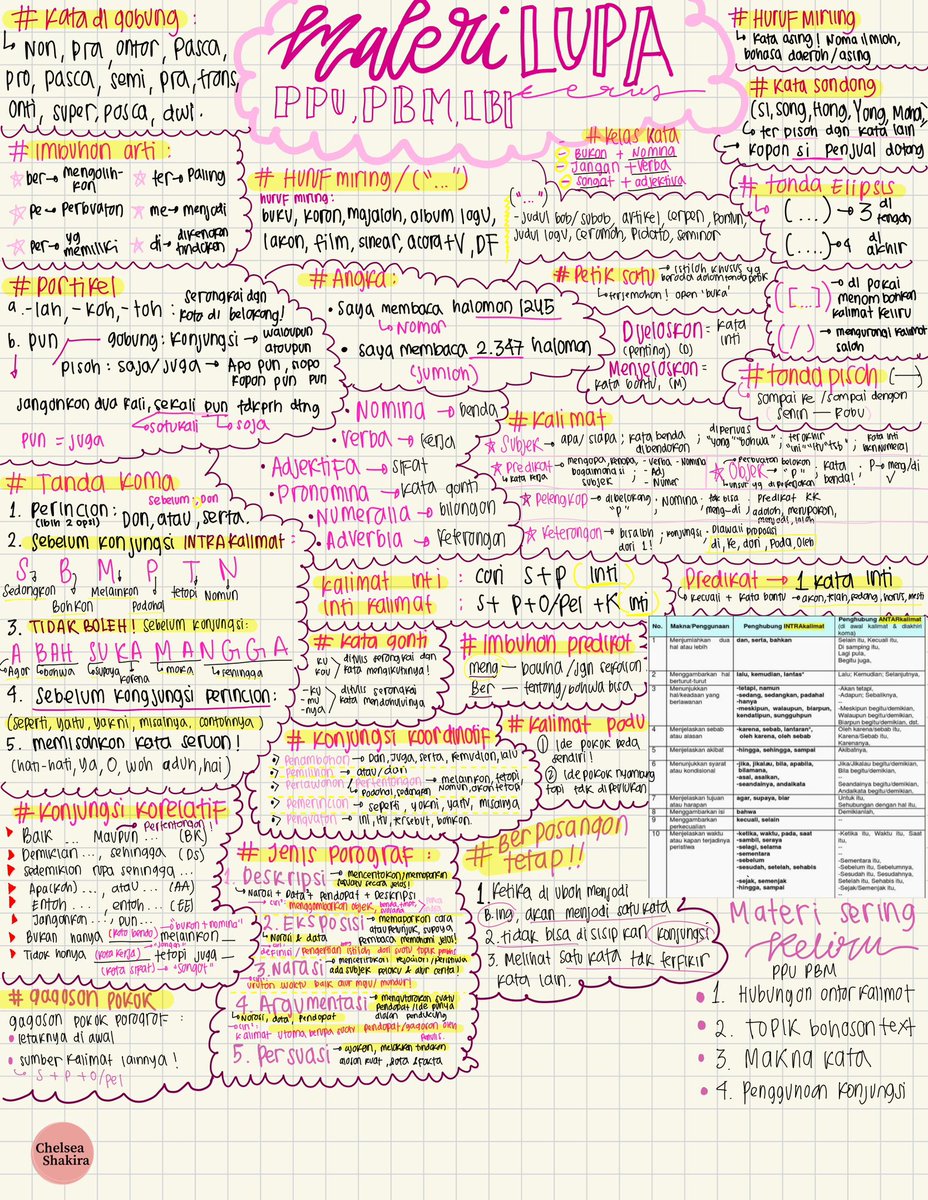 # Kata di gabung :
↳ Non, pra, antar, Pasca,
pro, pasca, semi, pra, trans,
anti, super, pasca, dwi.
Materi LUPA
terus
PPU, PBM, LBI
# HURUF Miring
↳ Kata asing! Nama ilmiah,
bahasa daerah/asing
# Kata sandang
(Si, Sang, Hang, Yang, Maha)
↳ ter pisah dgn kata lain
→ kapan si penjual datang
# Imbuhan arti :
ber → mengalih-kan
ter → Paling
pe → Perbuatan
me → menjadi
per → yg memiliki
di → dikenakan tindakan
# HURUF miring / ("...")
huruf miring :
buku, koran, majalah, album lagu,
lakon, film, sinear, acara tv, DF
("...")
- Judul bab/subab, artikel, cerpen, pantun,
Judul lagu, ceramah, Pidato, seminar
# Kelas Kata
- Bukan + Nomina
- Jangan + Verba
- Sangat + adjektiva
# tanda Elipsis
(...) → 3 di tengah
(....) → 4 di akhir
# Partikel
a. -lah, -kah, -toh : serangkai dgn
kata di belakang!
b. pun gabung : Konjungsi → walaupun
ataupun
pisah : saja/juga → Apa pun, siapa
kapan pun pun
Jangankan dua kali, sekali pun tdk prh dtng
↳ satu kali ↳ saja
pun = juga
# Angka :
• Saya membaca halaman 1245
↳ Nomor
• saya membaca 2.347 halaman
(jumlah)
# Petik satu → istilah khusus yg
berada dalam tanda petik
↳ terjemahan! open 'buka'
Dijelaskan = kata
(penting) (D) inti
Menjelaskan =
kata bantu, (M)
([...]) → di pakai
menambahkan
kalimat keliru
(/) → mengurangi kalimat
salah
# tanda pisah (—)
↳ sampai ke / sampai dengan
(senin — Rabu)
• Nomina → benda
• Verba → kerja
• Adjektifa → sifat
• Pronomina → kata ganti
• Numeralia → bilangan
• Adverbia → keterangan
# Kalimat
Subjek → apa/siapa ; kata benda dibendakan ; diperluas "yang" "bahwa" ; terakhir "ini" "itu" "tsb" ; kata inti
Predikat → mengapa, kenapa, bagaimana si subjek - Verba - Nomina - Adj - Numer
↳ kata kerja
Objek → "P" ; kata benda! ; P → meng/di
Pelengkap → dibelakang "P" ; Nomina ; tdk bisa meng-di ; Predikat KK / adalah, merupakan, menjadi, ialah
Keterangan → bisa lbh dari 1! ; Konjungsi ; Diawali preposisi di, ke, dari, Pada, oleh
# Tanda koma
1. Perincian : sebelum : dan
(lbih 2 opsi) Dan, atau, serta.
2. Sebelum konjungsi INTRAkalimat :
S B M P T N
Sedangkan Melainkan tetapi Namun
Bahkan Padahal
3. TIDAK BOLEH! Sebelum konjungsi :
A BAH SUKA MANGGA
↳ Agar ↳ bahwa ↳ supaya ↳ karena ↳ maka ↳ sehingga
4. Sebelum Kongjungsi perincian :
(seperti, yaitu, yakni, misalnya, contohnya)
5. memisahkan kata seruan!
(hati-hati, ya, O, woh aduh, hai)
Kalimat inti : cari S+P (Inti)
Inti kalimat : S+ P+O/Pel +K inti
Predikat → 1 kata inti
↳ Kecuali + Kata bantu → akan, tlah, sedang, harus, mesti
# Kata ganti
ku kau > ditulis serangkai dgn
kata mengikutinya!
-ku -mu -nya > ditulis serangkai
kata mendahuluinya.
# Imbuhan predikat
meng → bawha/jgn sekalian
Ber → tentang/bahwa bisa
# Kalimat padu
① Ide pokok beda
sendiri!
② Ide pokok nyambung
tapi tdk diperlukan
# Konjungsi koordinatif
Penambahan → Dan, Juga, serta, kemudian, lalu
Pemilihan → atau/dan
Perlawanan/Pertentangan → melainkan, tetapi
Padahal, sedangkan Namun, akan tetapi
Pemerincian → seperti, yakni, yaitu, misalnya.
Penguatan → ini, itu, tersebut, bahkan.
No. Makna/Penggunaan Penghubung INTRAkalimat Penghubung ANTARkalimat (di awal kalimat & diakhiri koma)
1 Menjumlahkan dua hal atau lebih dan, serta, bahkan Selain itu, Kecuali itu, Di samping itu, Lagi pula, Begitu juga,
2 Menggambarkan hal berturut-turut lalu, kemudian, lantas* Lalu; Kemudian; Selanjutnya,
3 Menunjukkan hal/keadaan yang berlawanan -tetapi, namun -sedang, sedangkan, padahal -hanya -meskipun, walaupun, biarpun, kendatipun, sungguhpun -Akan tetapi, -Adapun; Sebaliknya, -Meskipun begitu/demikian, Walaupun begitu/demikian, Biarpun begitu/demikian, dst.
4 Menjelaskan sebab atau alasan -karena, sebab, lantaran*, oleh karena, oleh sebab Oleh karena/sebab itu, Karena/Sebab itu, Karenanya,
5 Menjelaskan akibat -hingga, sehingga, sampai Akibatnya,
6 Menunjukkan syarat atau kondisional -jika, jikalau, bila, apabila, bilamana, -asal, asalkan, -seandainya, andaikata Jika/Jikalau begitu/demikian, Bila begitu/demikian, Seandainya begitu/demikian, Andaikata begitu/demikian
7 Menjelaskan tujuan atau harapan agar, supaya, biar Untuk itu, Sehubungan dengan hal itu,
8 Menggambarkan isi bahwa Demikianlah,
9 Menggambarkan perkecualian kecuali, selain
10 Menjelaskan waktu atau kapan terjadinya peristiwa -ketika, waktu, pada, saat -sambil, seraya -selagi, selama -sementara -sebelum -sesudah, setelah, sehabis -sejak, semenjak -hingga, sampai -Ketika itu, Waktu itu, Saat itu, -Sementara itu, -Sebelum itu, Sebelumnya, -Sesudah itu, Sesudahnya, Setelah itu, Sehabis itu, -Sejak/Semenjak itu,
# Konjungsi Korelatif
Baik ... Maupun ... (BK)
Pertentangan!
Demikian ..., sehingga (DS)
Sedemikian rupa sehingga ...
Apa(kah) ..., atau ... (AA)
Entah ..., entah ... (EE)
Jangankan ..., pun ...
Bukan hanya (kata benda) melainkan —
"bukan + nomina"
Tidak hanya (kata kerja) tetapi juga —
"Jangan"
(kata sifat) → "sangat"
# gagasan pokok
gagasan pokok paragraf :
• letaknya di awal
• sumber kalimat lainnya!
↳ S + P + O/pel
# Jenis paragraf :
1. Deskripsi → mencentakan/memaparkan
suatu secara jelas!
↳ Narasi + Data² + Pendapat + Deskripsi
ciri² : menggambarkan objek,
2. Eksposisi → memaparkan cara
atau petunjuk, supaya
pembaca memahami jelas!
↳ Narasi & data
definisi/pengertian istilah dari suatu topik
3. Narasi → menceritakan kejadian/peristiwa
ada subjek pelaku & alur cerita!
urutan waktu baik alur maju/mundur!
4. Argumentasi → mengutarakan suatu
pendapat/ide punya
alasan pendukung
↳ Narasi, data, pendapat
ciri² :
kalimat utama berupa suatu pendapat/gagasan oleh penulis.
5. Persuasi → ajakan, melakukan tindakan
alasan kuat, data & fakta
# Berpasangan
tetap!!
1. Ketika di ubah menjadi
B.ing, akan menjadi satu kata
2. tidak bisa di sisip kan konjungsi
3. Melihat satu kata tdk terfikir
kata lain.
Materi sering
keliru
PPU PBM
• 1. Hubungan antar kalimat
• 2. Topik bahasan text
• 3. Makna kata
• 4. Penggunaan konjungsi
Chelsea
Shakira